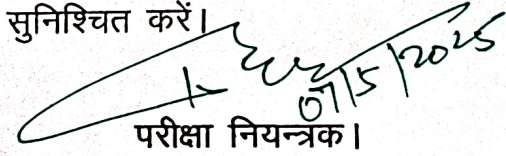 सुनिश्चित करें।
07/5/2025
परीक्षा नियन्त्रक।